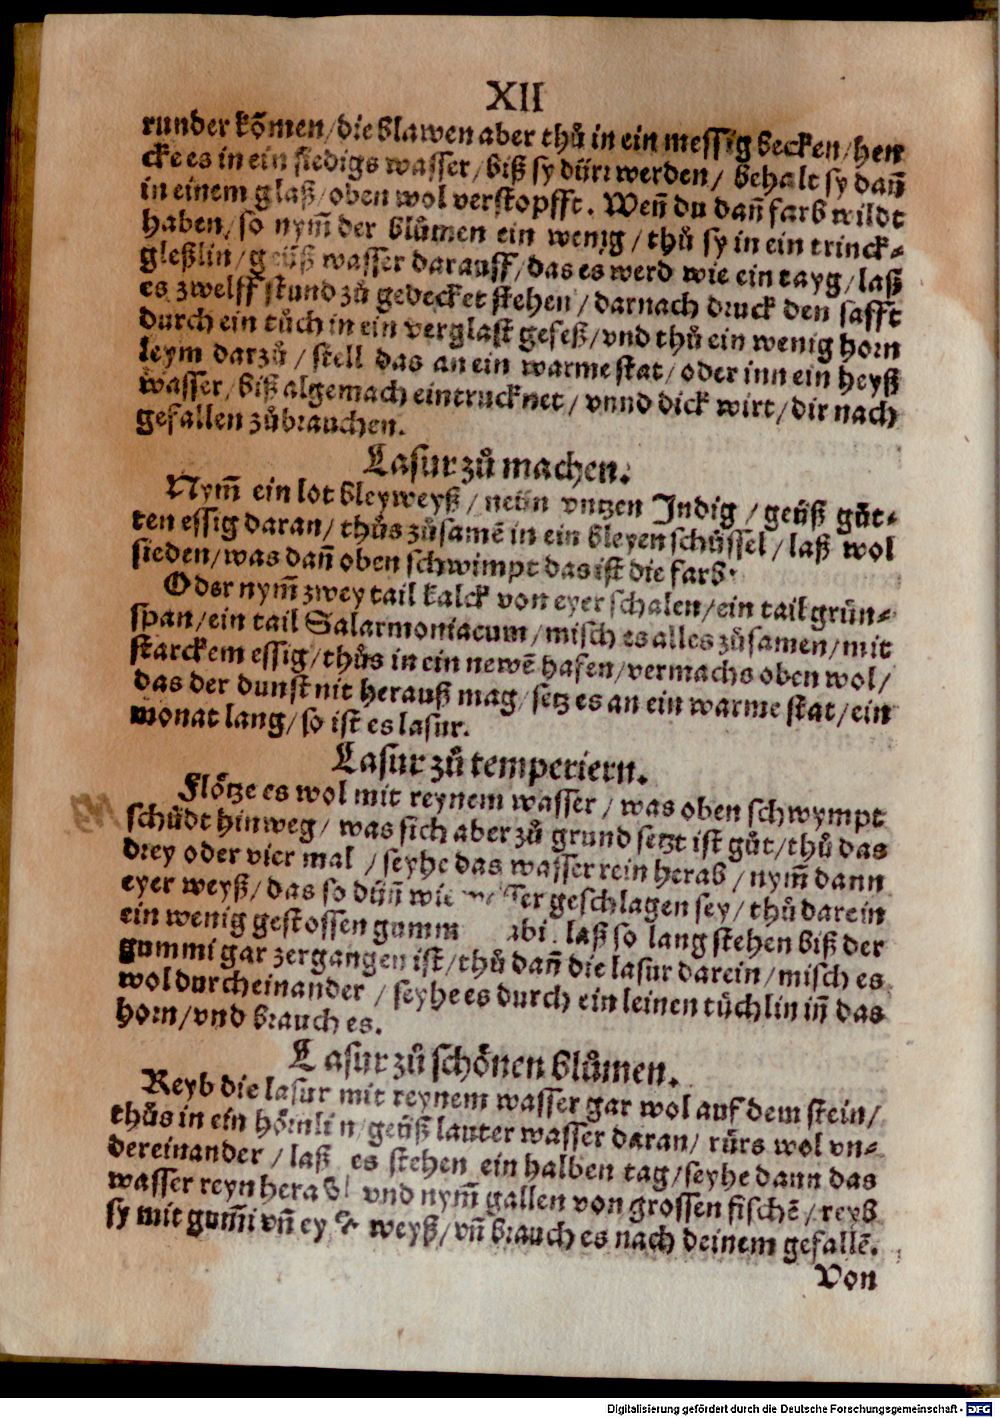 XII
runder kõmen/die blawen aber thů in ein messig becken/hen
cke es in ein siedigs wasser/biß sy dürr werden/ behalt sy dañ
in einem glaß/oben wol verstopfft. Weñ du dañ farb wildt
haben/ so nym̃ der blůmen ein wenig/thů sy in ein trinck-
gleßlin/geüß wasser darauff/das es werd wie ein tayg/laß
es zwelff stund zů gedecket stehen/darnach druck den safft
durch ein tůch in ein verglast gefeß/vnd thů ein wenig horn
leym darzů/stell das an ein warme stat/oder inn ein heyß
wasser/biß algemach eintrucknet/vnnd dick wirt/dir nach
gefallen zůbrauchen.
Lasur zů machen.
Nym̃ ein lot bleyweyß/neün vntzen Jndig/geüß gůt-
ten essig daran/thůs zůsamẽ in ein bleyen schüssel/laß wol
sieden/was dañ oben schwimpt das ist die farb.
Oder nym̃ zwey tail kalck von eyer schalen/ein tail grün-
span/ein tail Salarmoniacum/misch es alles zůsamen/mit
starckem essig/thůs in ein newẽ hafen/vermachs oben wol/
das der dunst nit herauß mag/setz es an ein warme stat/ein
monat lang/so ist es lasur.
Lasur zů temperiern.
Flötze es wol mit reynem wasser/was oben schwympt
schüdt hinweg/was sich aber zů grund setzt ist gůt/thů das
drey oder vier mal/seyhe das wasser rein herab/nym̃ dann
eyer weyß/das so düñ wie wasser geschlagen sey/thů darein
ein wenig gestossen gumm abi laß so lang stehen biß der
gummi gar zergangen ist/thů dañ die lasur darein/misch es
wol durcheinander/seyhe es durch ein leinen tüchlin iñ das
horn/vnd brauch es.
Lasur zů schönen blůmen.
Reyb die lasur mit reynem wasser gar wol auf dem stein/
thůs in ein hörnlin/geüß lauter wasser daran/rürs wol vn-
dereinander/laß es stehen ein halben tag/seyhe dann das
wasser reyn herab/ vnd nym̃ gallen von grossen fischẽ/reyb
sy mit gum̃i vñ ey weyß/vñ brauch es nach deinem gefallẽ.
Von
Digitalisierung gefördert durch die Deutsche Forschungsgemeinschaft - DFG